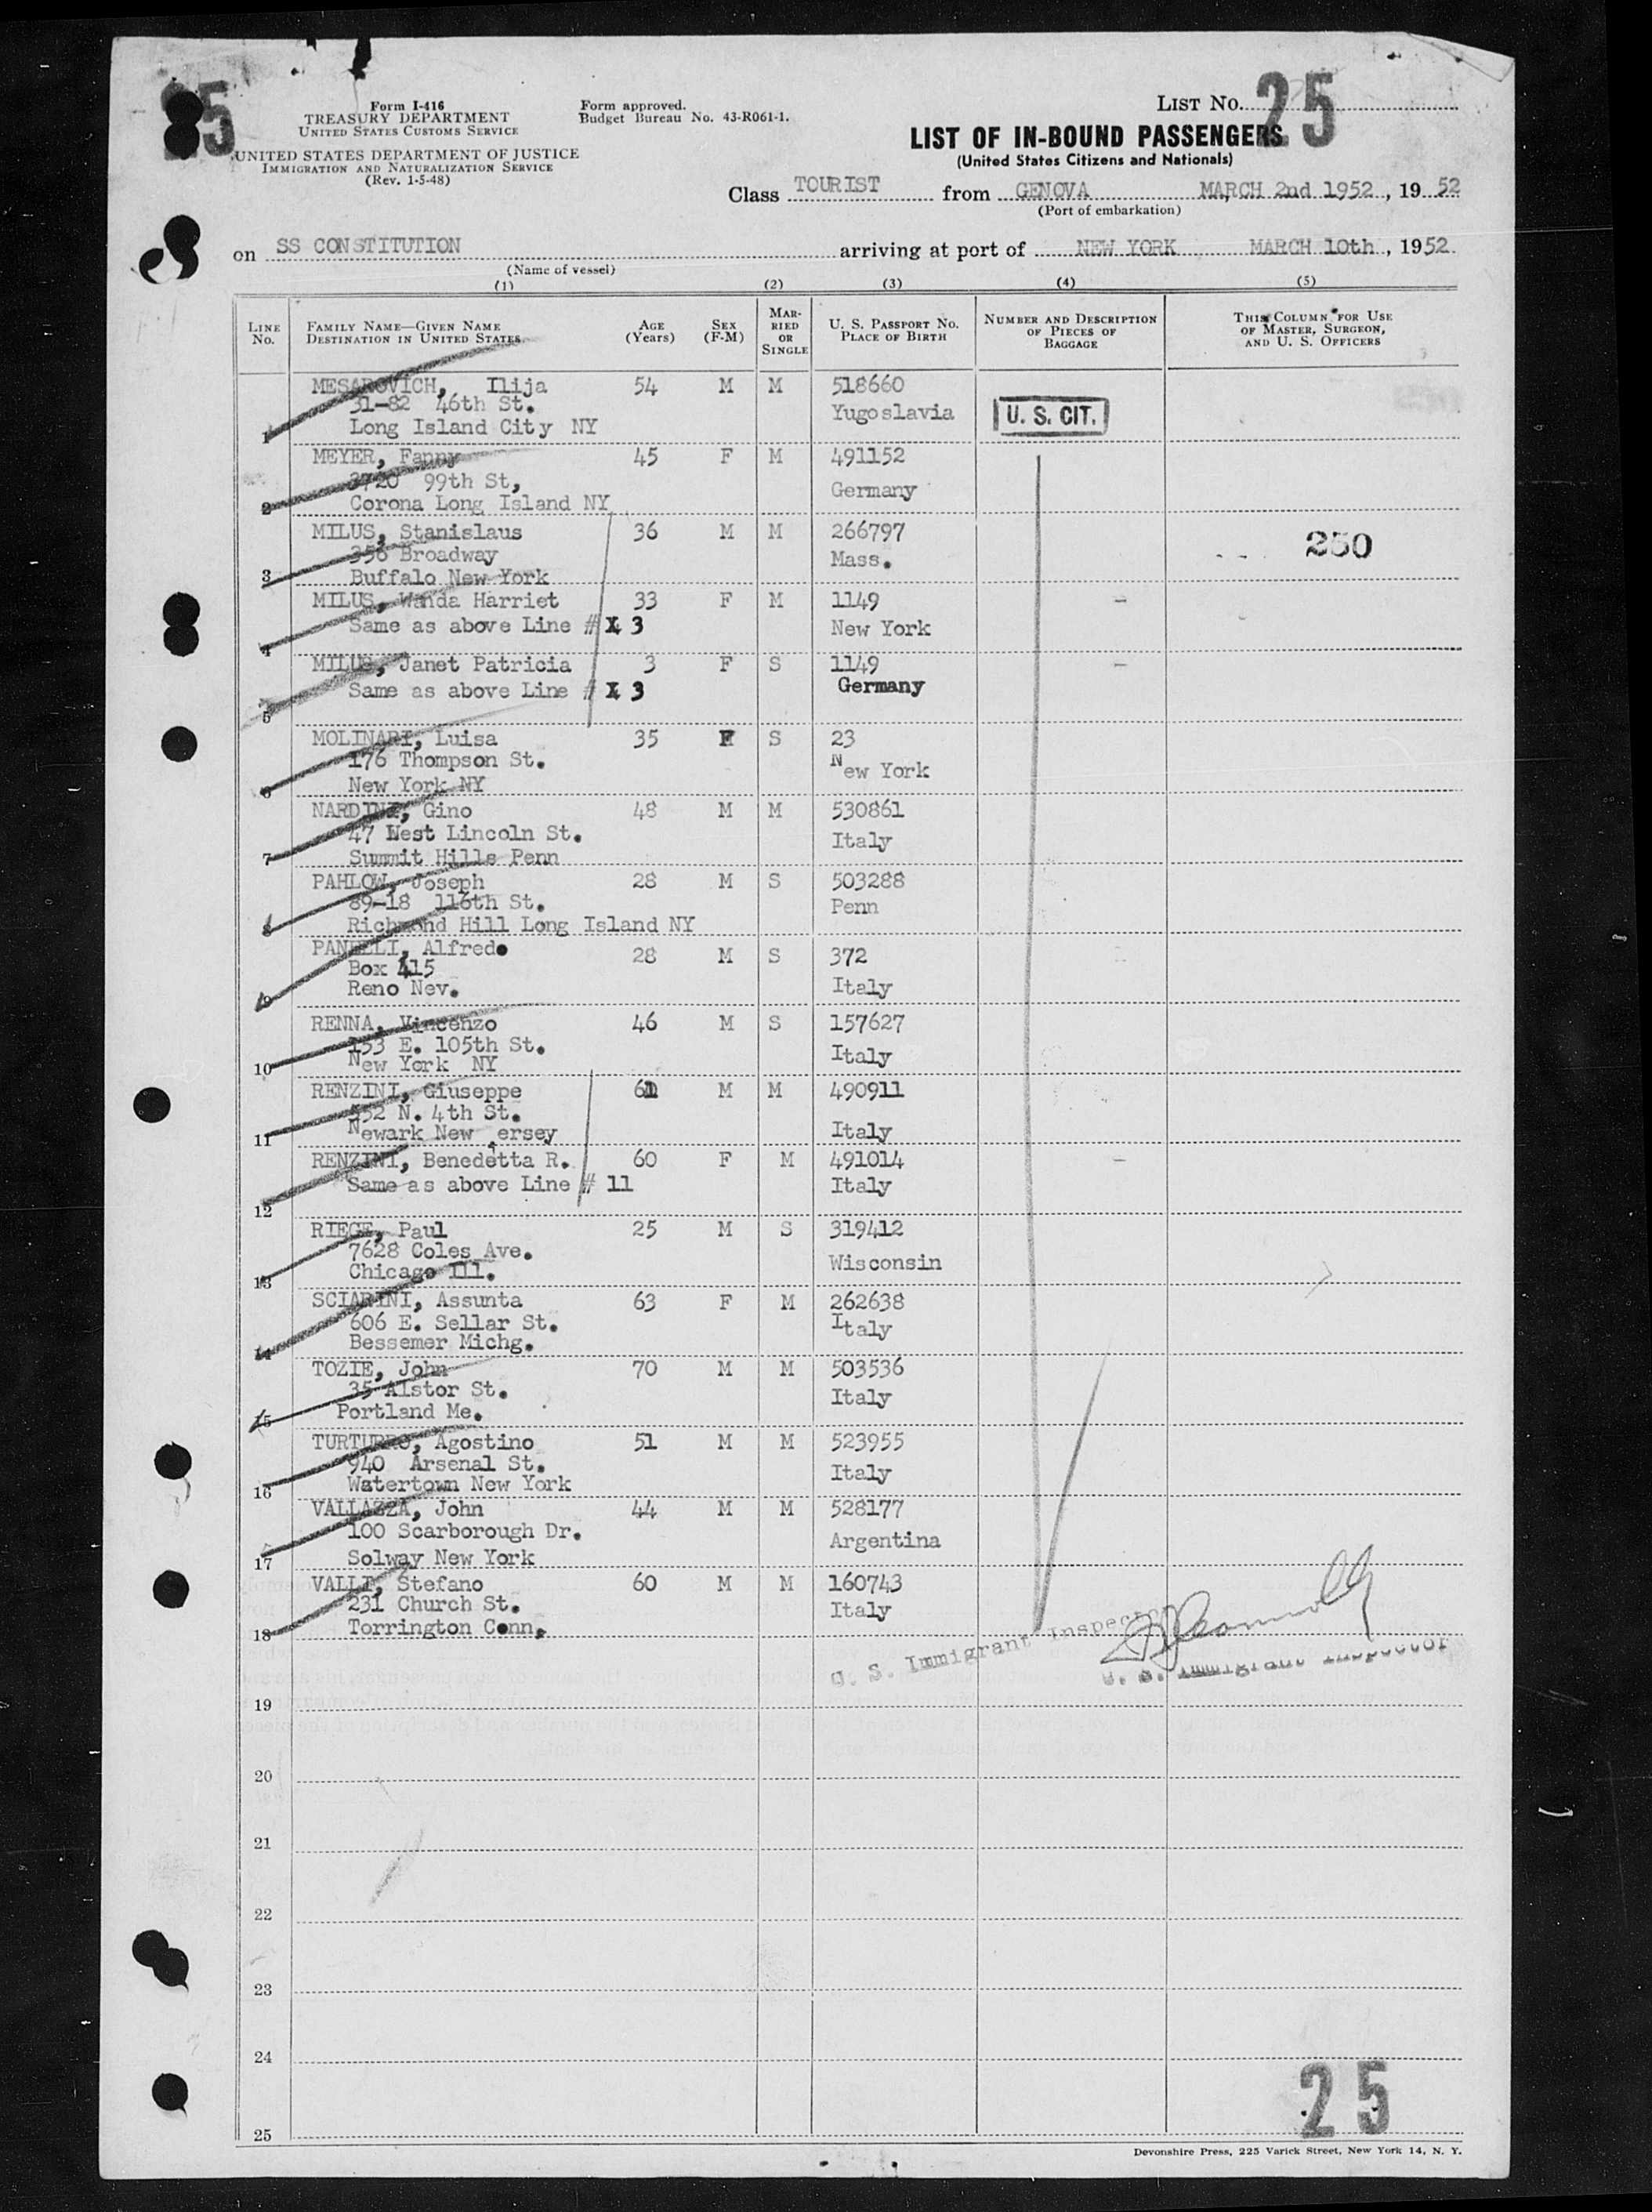 25
Form I-416
TREASURY DEPARTMENT
UNITED STATES CUSTOMS SERVICE
UNITED STATES DEPARTMENT OF JUSTICE
IMMIGRATION AND NATURALIZATION SERVICE
(Rev. 1-5-48)
Form approved.
Budget Bureau No. 43-R061-1.
LIST NO. 25
LIST OF IN-BOUND PASSENGERS
(United States Citizens and Nationals)
Class TOURIST from GENOVA MARCH 2nd 1952, 19 52
(Port of embarkation)
on SS CONSTITUTION arriving at port of NEW YORK MARCH 10th, 1952
(Name of vessel)
(1) (2) (3) (4) (5)
LINE NO.
FAMILY NAME—GIVEN NAME
DESTINATION IN UNITED STATES
AGE (Years)
SEX (F-M)
MARRIED OR SINGLE
U. S. PASSPORT NO.
PLACE OF BIRTH
NUMBER AND DESCRIPTION OF PIECES OF BAGGAGE
THIS COLUMN FOR USE OF MASTER, SURGEON, AND U. S. OFFICERS
MESAROVICH, Ilija 54 M M 518660
31-82 46th St. Yugoslavia U. S. CIT.
1 Long Island City NY
MEYER, Fanny 45 F M 491152
3720 99th St, Germany
2 Corona Long Island NY
MILUS, Stanislaus 36 M M 266797 250
356 Broadway Mass.
3 Buffalo New York
MILUS, Wanda Harriet 33 F M 1149 -
Same as above Line # X 3 New York
4
MILUS, Janet Patricia 3 F S 1149 -
Same as above Line # X 3 Germany
5
MOLINARI, Luisa 35 F S 23
176 Thompson St. New York
6 New York NY
NARDINI, Gino 48 M M 530861
47 West Lincoln St. Italy
7 Summit Hills Penn
PAHLOW, Joseph 28 M S 503288
89-18 116th St. Penn
8 Richmond Hill Long Island NY
PANELLI, Alfredo 28 M S 372
Box 415
9 Reno Nev. Italy
RENNA, Vincenzo 46 M S 157627
153 E. 105th St. Italy
10 New York NY
RENZINI, Giuseppe 61 M M 490911
552 N. 4th St.
11 Newark New Jersey Italy
RENZINI, Benedetta R. 60 F M 491014 -
Same as above Line # 11 Italy
12
RIEGE, Paul 25 M S 319412
7628 Coles Ave. Wisconsin
13 Chicago Ill.
SCIARINI, Assunta 63 F M 262638
606 E. Sellar St. Italy
14 Bessemer Michg.
TOZIE, John 70 M M 503536
35 Alstor St. Italy
15 Portland Me.
TURTURRO, Agostino 51 M M 523955
940 Arsenal St. Italy
16 Watertown New York
VALLAZZA, John 44 M M 528177
100 Scarborough Dr. Argentina
17 Solway New York
VALLE, Stefano 60 M M 160743
231 Church St. Italy
18 Torrington Conn.
U. S. Immigrant Inspector
U. S. Immigrant Inspector
19
20
21
22
23
24
25
25
Devonshire Press, 225 Varick Street, New York 14, N. Y.